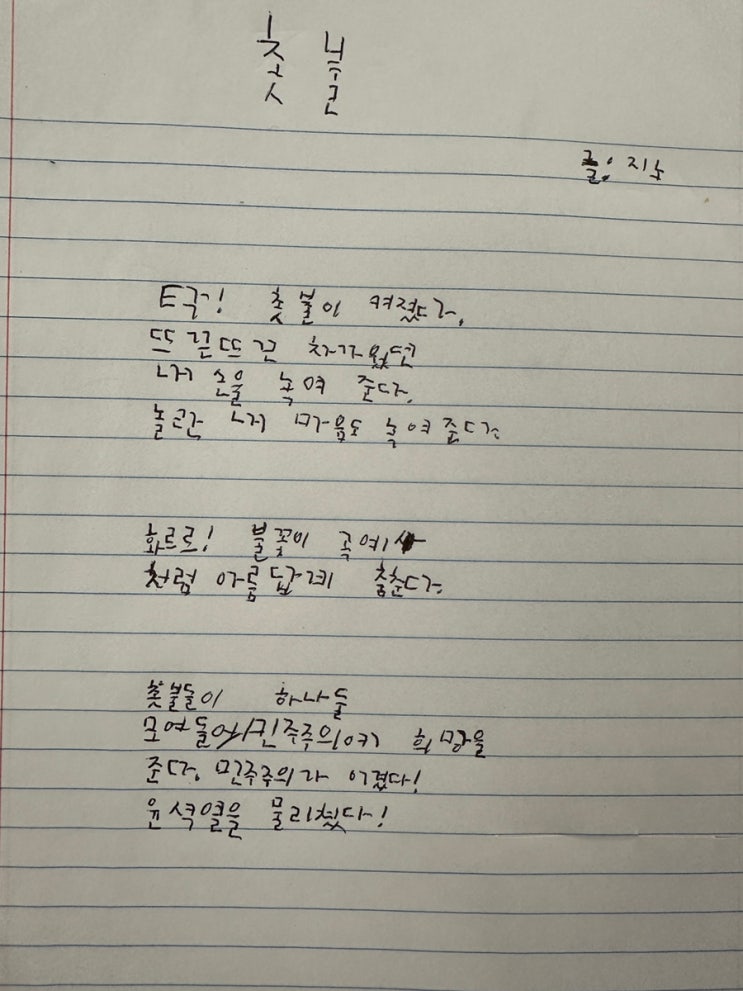 촛 불
글: 지수
탁! 촛불이 켜졌다.
뜨끈뜨끈 차가웠던
너 손을 녹여 준다.
놀란 너 마음도 녹여 준다.
화르르! 불꽃이 곡예사
처럼 아름답게 춤춘다.
촛불들이 하나둘
모여들어 민주주의에게 희망을
준다. 민주주의가 이겼다!
윤석열을 물리쳤다!